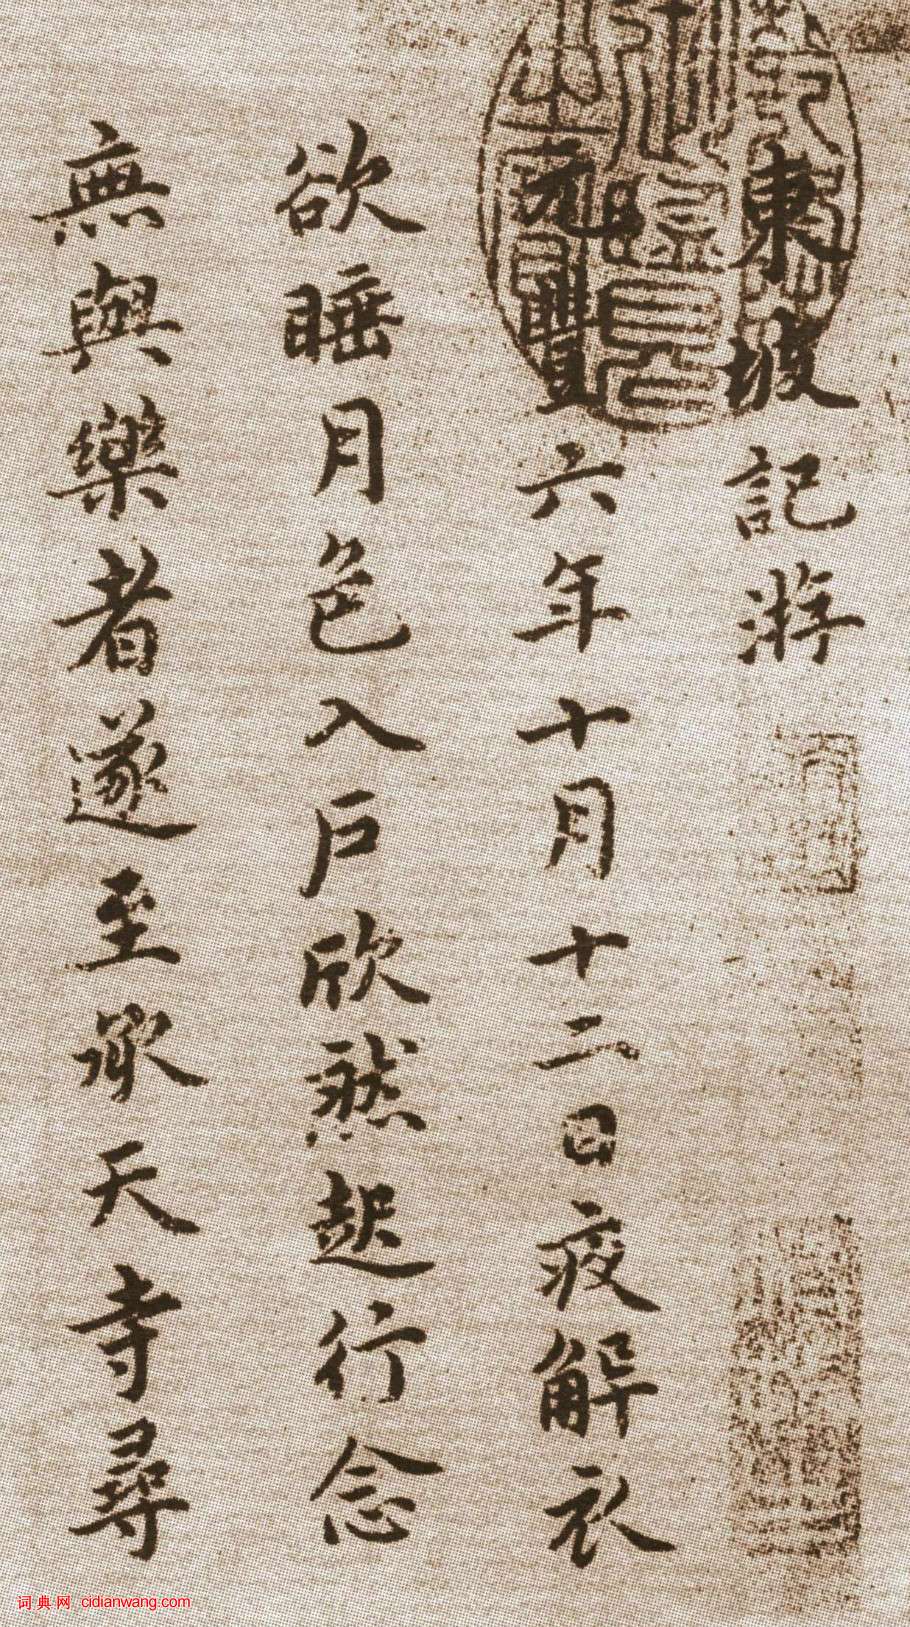 東坡記游
元豐六年十月十二日夜解衣
欲睡月色入戶欣然起行念
無與樂者遂至承天寺尋
词典网 cidianwang.com